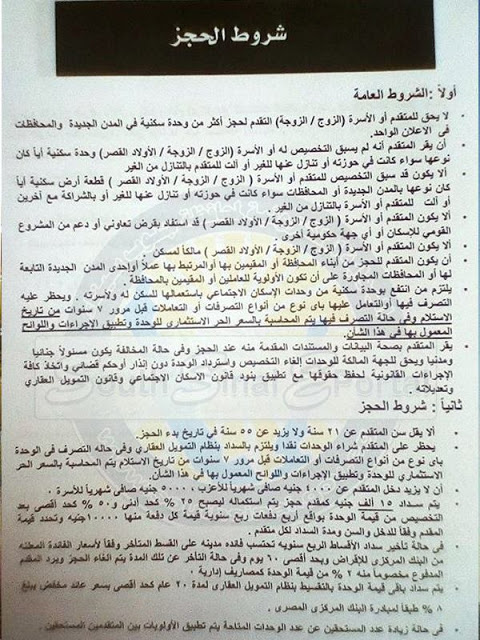 شروط الحجز
أولاً :الشروط العامة
لا يحق للمتقدم أو الأسرة (الزوج / الزوجة) التقدم لحجز أكثر من وحدة سكنية في المدن الجديدة والمحافظات
في الاعلان الواحد.
أن يقر المتقدم أنه لم يسبق التخصيص له أو الأسرة (الزوج / الزوجة / الأولاد القصر) وحدة سكنية أياً كان
نوعها سواء كانت في حوزته أو تنازل عنها للغير أو آلت للمتقدم بالتنازل من الغير
ألا يكون قد سبق التخصيص للمتقدم أو الأسرة (الزوج / الزوجة / الأولاد القصر ) قطعة أرض سكنية أياً
كان نوعها بالمدن الجديدة أو المحافظات سواء كانت في حوزته أو تنازل عنها للغير أو بالشراكة مع آخرين
أو آلت للمتقدم أو الأسرة بالتنازل من الغير.
ألا يكون المتقدم أو الأسرة ( الزوج / الزوجة / الأولاد القصر ) قد استفاد بقرض تعاوني أو دعم من المشروع
القومي للإسكان أو أي جهة حكومية أخرى .
ألا يكون المتقدم أو الأسرة ( الزوج / الزوجة / الأولاد القصر ) مالكاً لمسكن .
أن يكون المتقدم للحجز من أبناء المحافظة أو المقيمين بها أوالمرتبط بها عملاً أوإحدى المدن الجديدة التابعة
لها أو المحافظات المجاورة على أن تكون الأولوية للعاملين أو المقيمين بالمحافظة .
يلتزم من انتفع بوحدة سكنية من وحدات الإسكان الاجتماعي باستعمالها للسكن له ولأسرته . ويحظر عليه
التصرف فيها أوالتعامل عليها بأى نوع من أنواع التصرفات أو التعاملات قبل مرور ٧ سنوات من تاريخ
الاستلام وفى حالة التصرف فيها يتم المحاسبة بالسعر الحر الاستثماري للوحدة وتطبيق الإجراءات واللوائح
المعمول بها في هذا الشأن.
يقر المتقدم بصحة البيانات والمستندات المقدمة منه عند الحجز وفى حالة المخالفة يكون مسئولاً جنائيا
ومدنيا ويحق للجهة المالكة للوحدات إلغاء التخصيص واسترداد الوحدة دون إنذار أوحكم قضائي واتخاذ كافة
الإجراءات القانونية لحفظ حقوقها مع تطبيق بنود قانون الاسكان الاجتماعي وقانون التمويل العقاري
وتعديلاته .
ثانياً : شروط الحجز
ألا يقل سن المتقدم عن ٢١ سنة ولا يزيد عن ٥٥ سنة في تاريخ بدء الحجز.
يحظر على المتقدم شراء الوحدات نقدا ويلتزم بالسداد بنظام التمويل العقاري وفى حاله التصرف فى الوحدة
بأى نوع من أنواع التصرفات أو التعاملات قبل مرور ٧ سنوات من تاريخ الاستلام يتم المحاسبة بالسعر الحر
الاستثماري للوحدة وتطبيق الإجراءات واللوائح المعمول بها في هذا الشأن.
أن لا يزيد دخل المتقدم عن جنيه صافى شهرياً للأعزب، جنيه صافى شهرياً للأسرة .
يتم سداد ١٥ ألف جنيه كمقدم حجز يتم استكماله ليصبح ٢٥ % كحد أدنى و٥٠ % كحد أقصى بعد
التخصيص من قيمة الوحدة بواقع أربع دفعات ربع سنوية قيمة كل دفعة منها ١٠٠٠٠جنيه وتحدد قيمة
المقدم وفقاً للدخل والسن ومدة السداد لكل متقدم .
في حالة تأخير سداد الأقساط الربع سنويه تحتسب فائده مدينه على القسط المتأخر وفقا لأسعار الفائدة المعلنه
من البنك المركزى للإقراض وبحد أقصى ٦٠ يوم وفى حالة التأخر عن تلك المدة يتم الغاء الحجز ويرد المقدم
المدفوع مخصوماً منه ٢ % من قيمة الوحدة كمصاريف إدارية .
يتم سداد باقي قيمة الوحدة بالتقسيط بنظام التمويل العقارى لمدة ٢٠ عام كحد أقصى بسعر عائد مخفض يبلغ
٨ % طبقا لمبادرة البنك المركزى المصرى .
في حالة زيادة عدد المستحقين عن عدد الوحدات المتاحة يتم تطبيق الأولويات بين المتقدمين المستحقين .